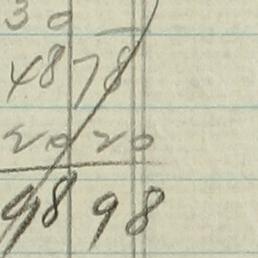 30
48 78
20 20
98 98